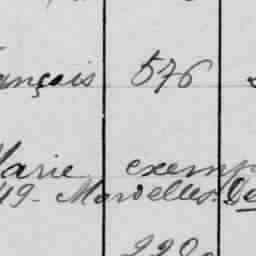 ançois 576
Marie exemp
49 - Mardelles. De
220